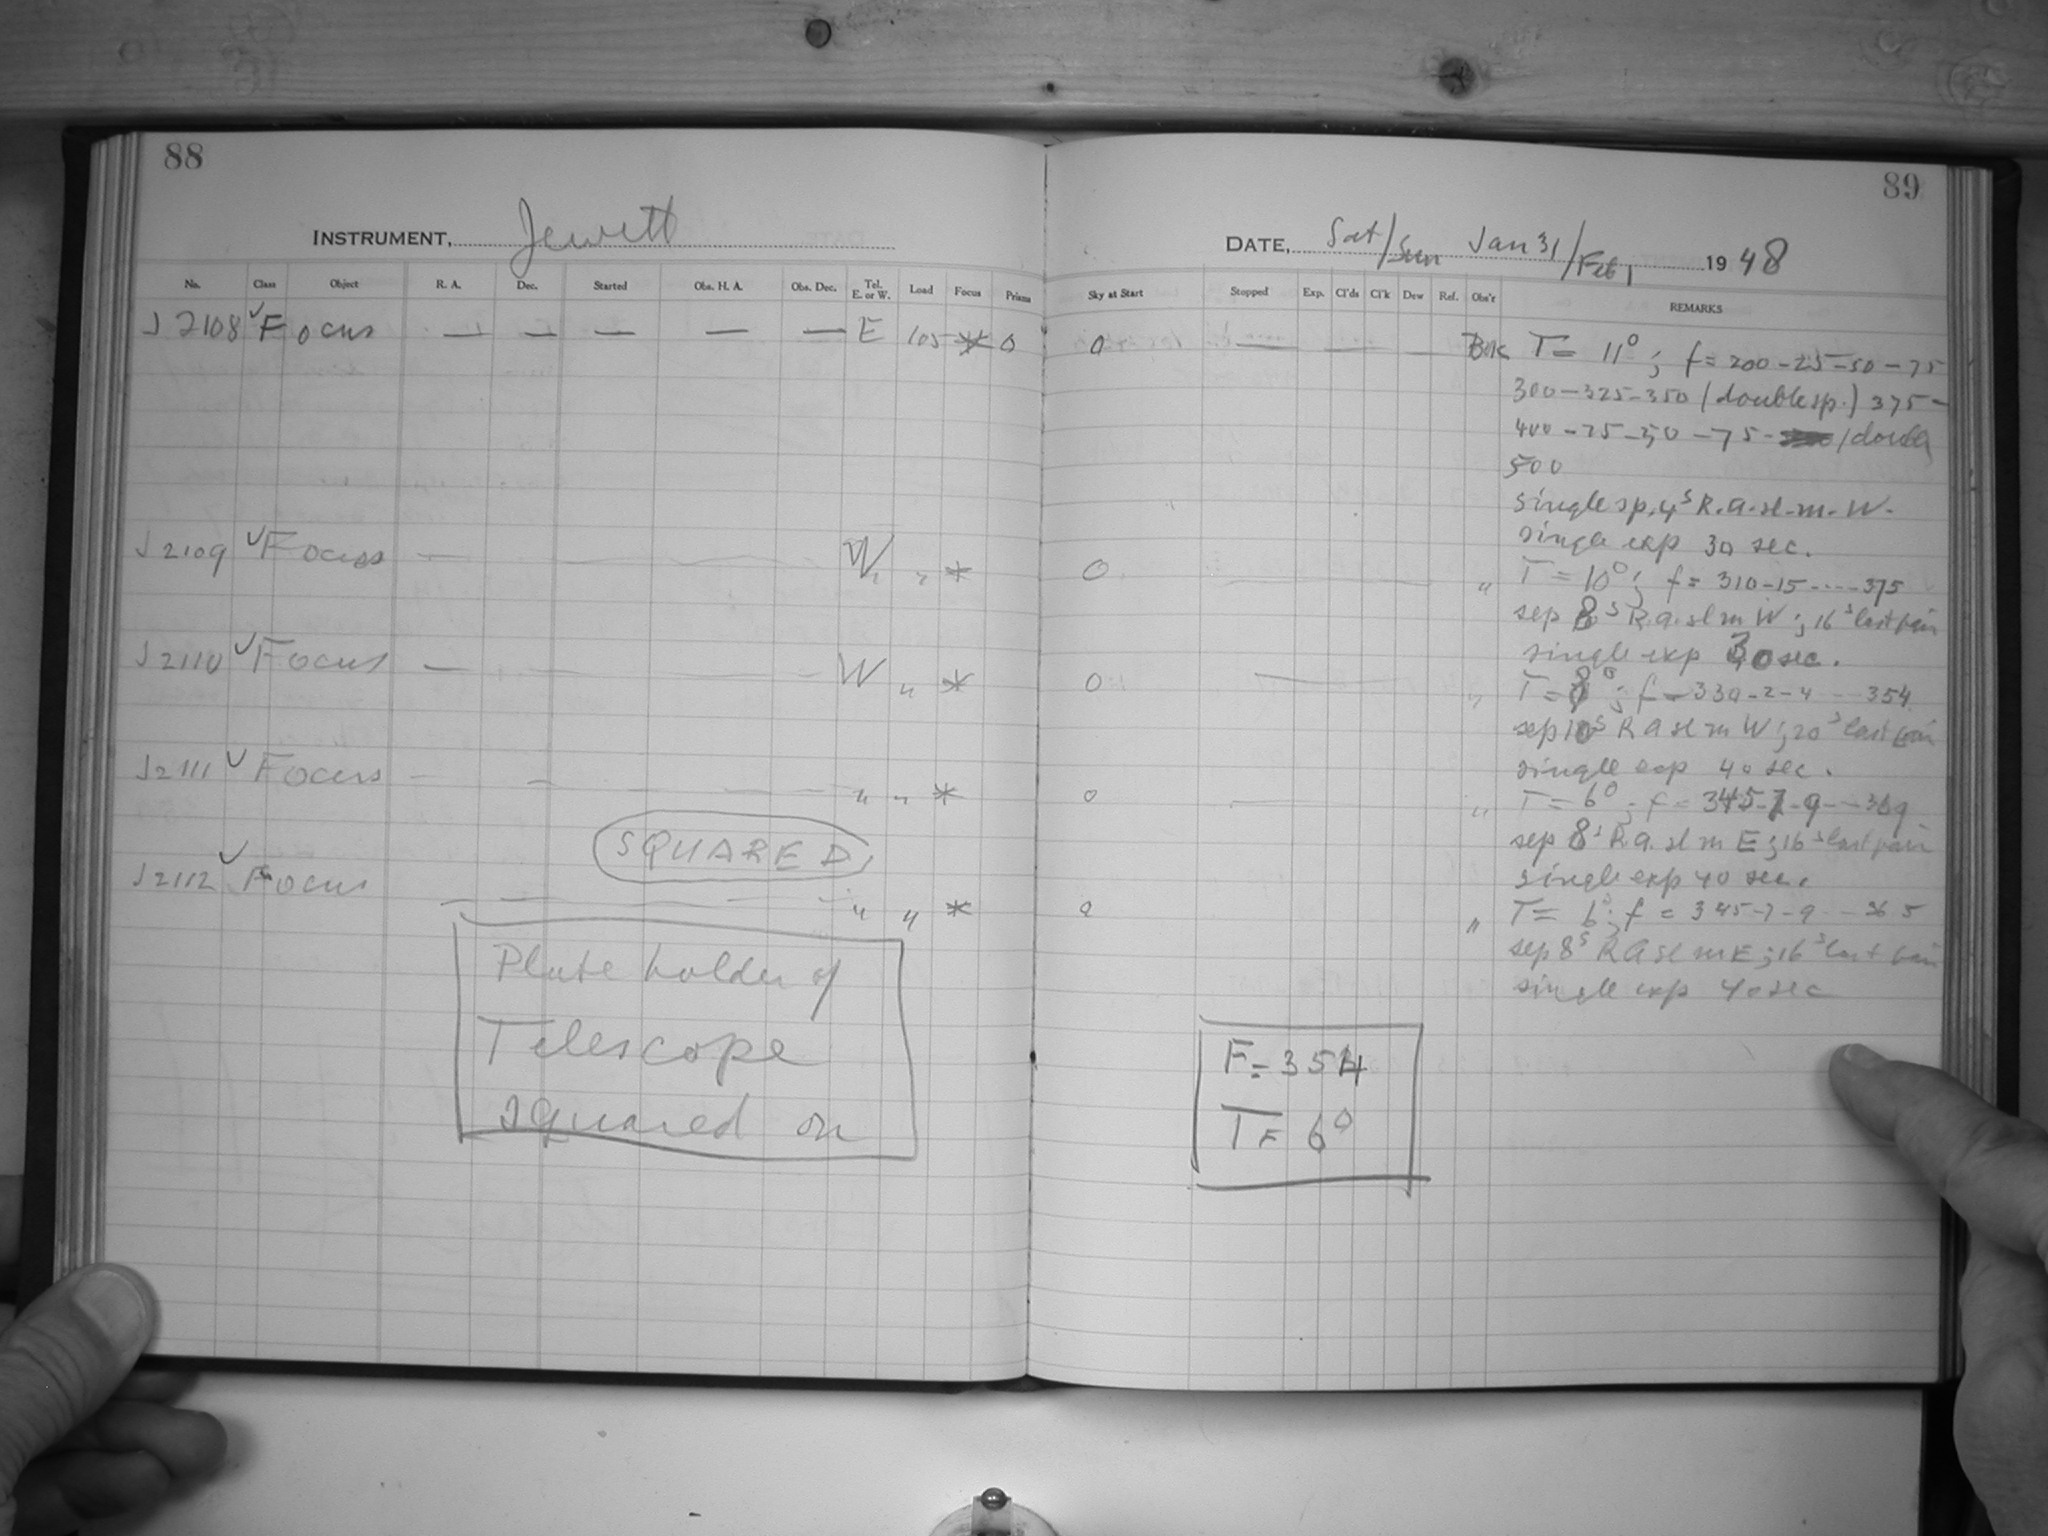 88
INSTRUMENT, Jewett
No. Class Object R. A. Dec. Started Obs. H. A. Obs. Dec. Tel. E. or W. Load Focus Prisms
J 2108 ✓ Focus — — — — — E 105 * 0
J 2109 ✓ Focus — — W " *
J 2110 ✓ Focus — — W " *
J 2111 ✓ Focus — — — " " *
SQUARED
J 2112 ✓ Focus — — — " " *
Plate holder of
Telescope
squared on
89
DATE, Sat/Sun Jan 31/Feb 1 1948
Sky at Start Stopped Exp. Cl'ds Cl'k Dew Ref. Obs'r REMARKS
0 — — — T = 11°; f = 200-25-50-75
300-325-350 (double sp.) 375-
400-25-50-75- (double)
500
single sp. 4s R.a. sl. m. W.
single exp 30 sec.
0 " T = 10°; f = 310-15 ---- 375
sep 8s R.a. sl m W; 16s last pair
single exp 30 sec.
0 " T = 8°; f = 330-2-4 --- 354
sep 10s R a sl m W; 20s last pair
single exp 40 sec.
0 " T = 6°; f = 345-7-9 --- 369
sep 8s R a. sl m E; 16s last pair
single exp 40 sec.
0 " T = 6°; f = 345-7-9 -- 365
sep 8s R a sl m E; 16s last pair
single exp 40 sec
F = 354
T = 6°